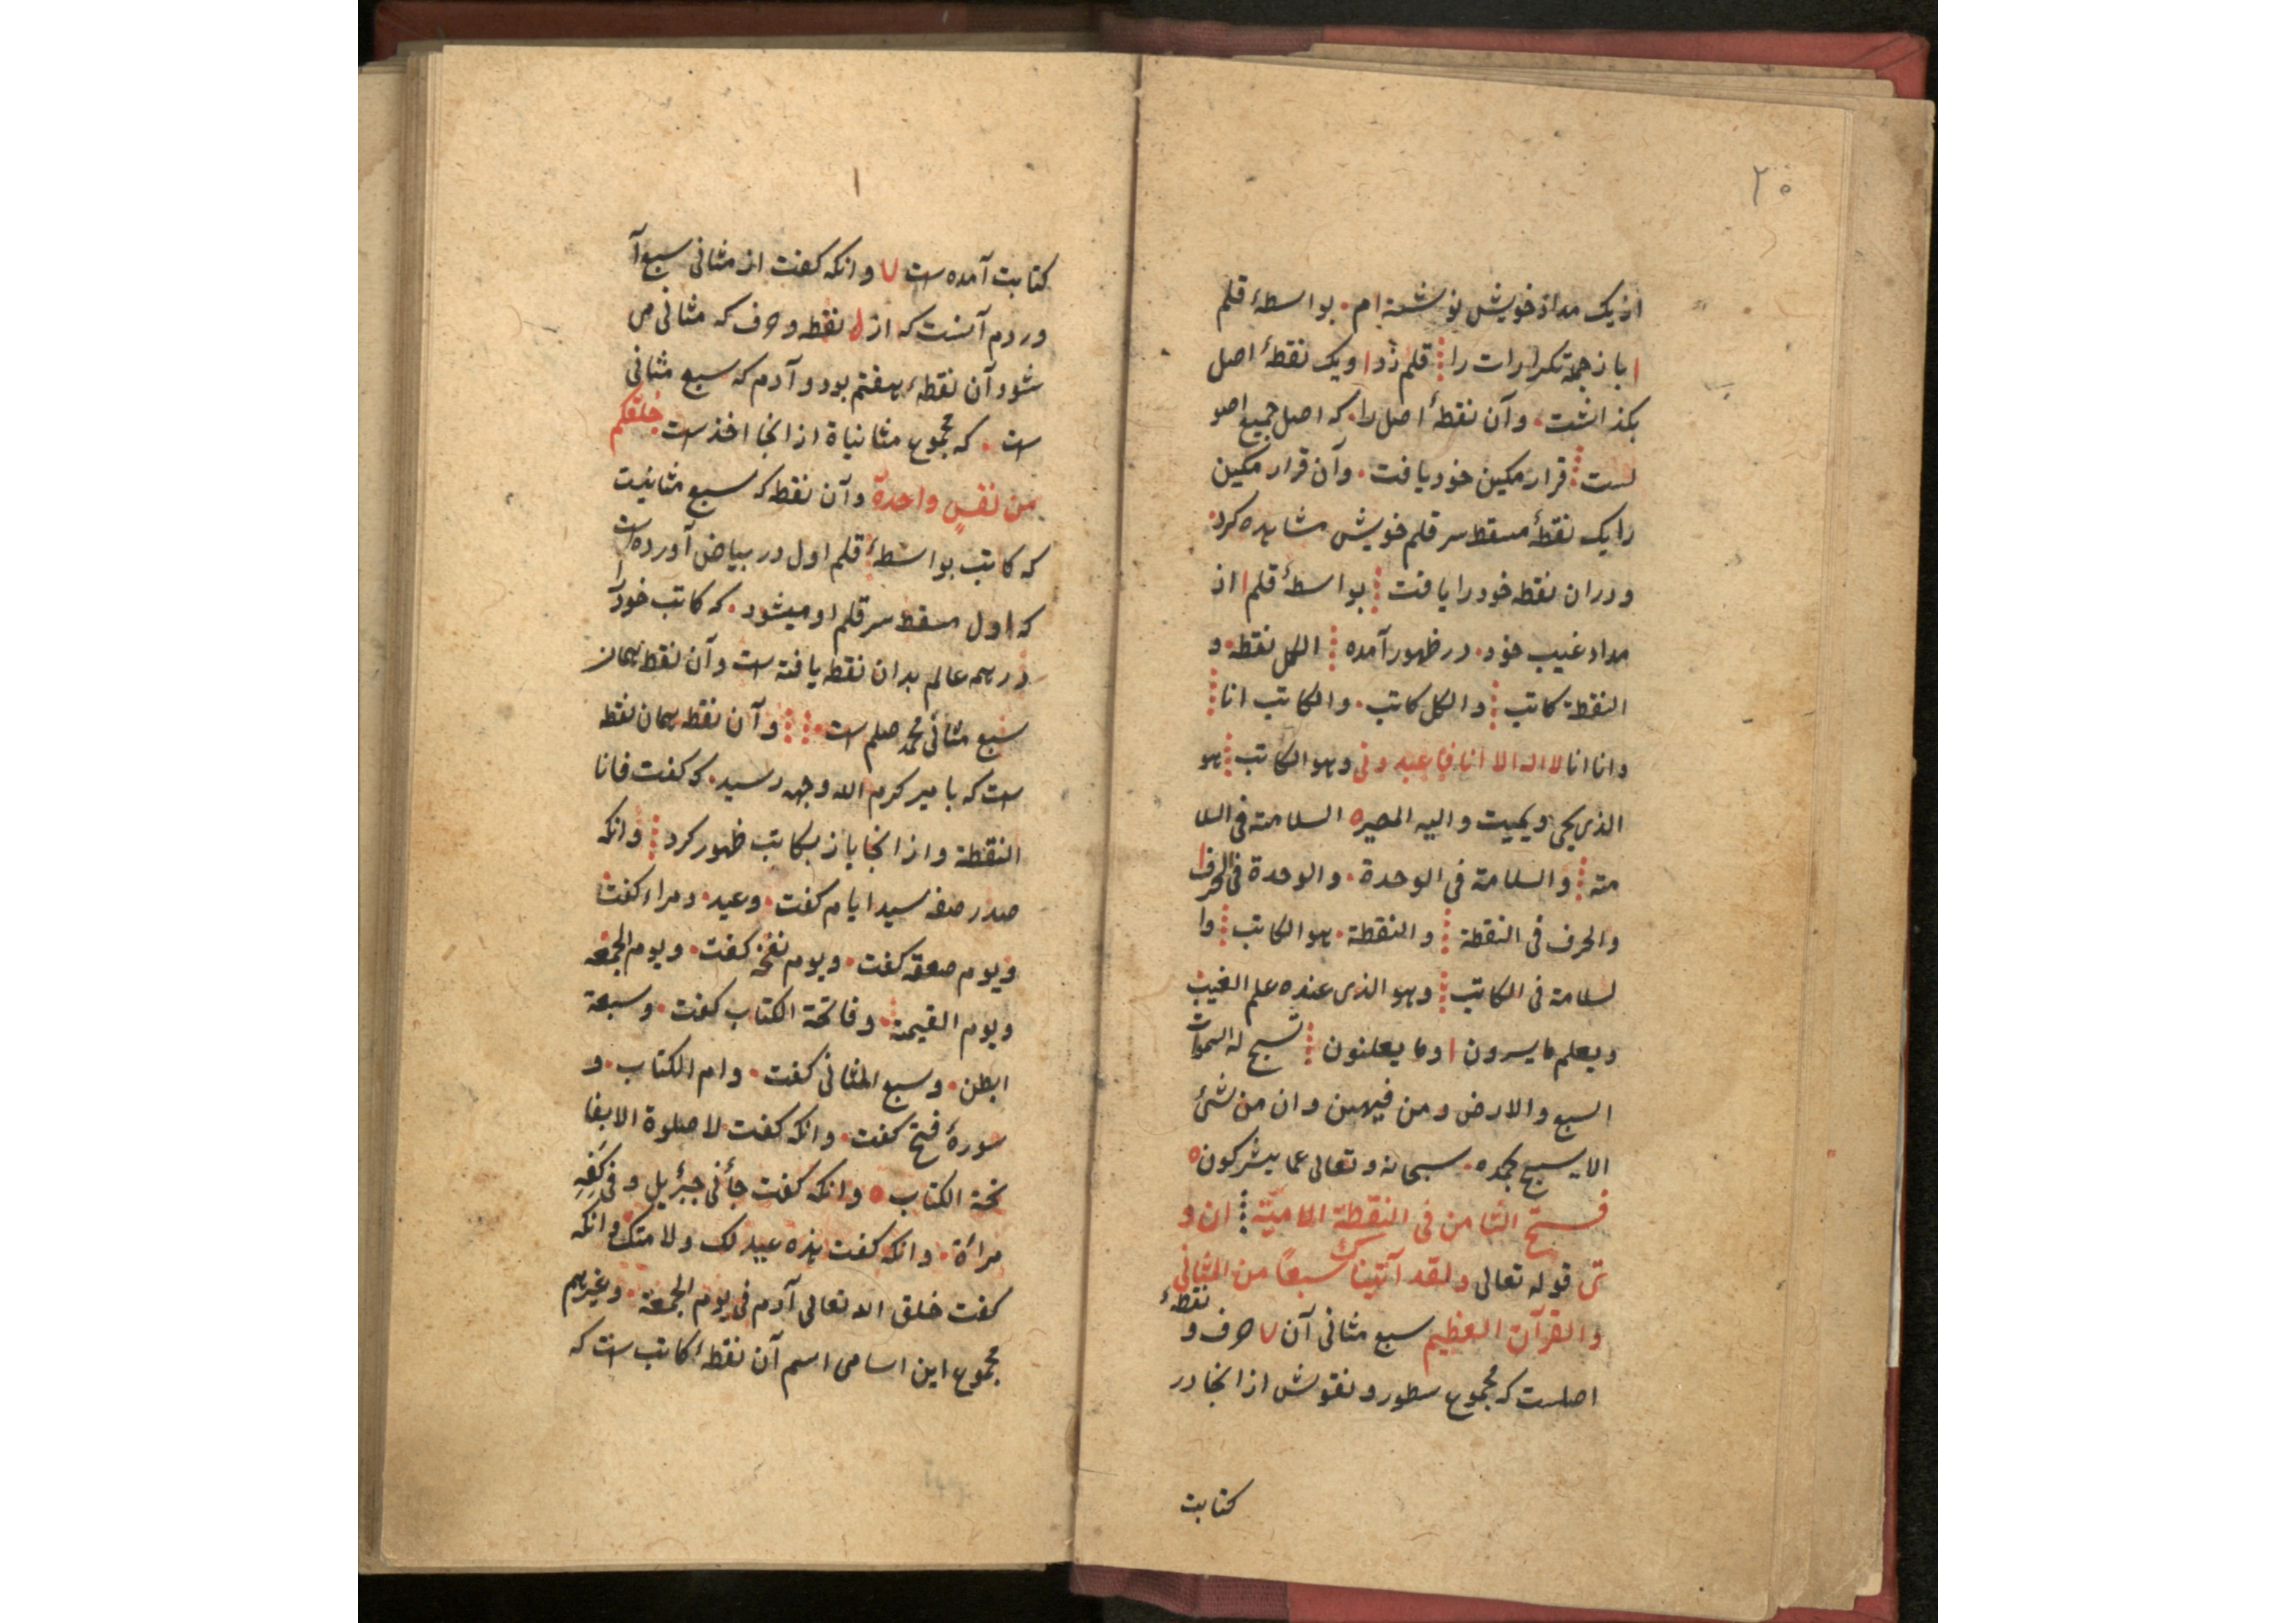 ۲۰
از یک مداد خویش نوشته ام. بواسطهٔ قلم
ا باز جمله تکرارات را ⁞ قلم زد ا و یک نقطهٔ اصل
بکذاشت. وآن نقطهٔ اصل را. که اصل جمیع اصو
لست ⁞ قرار مکین خود یافت. وآن قرار مکین
را یک نقطهٔ مسقط سر قلم خویش مشاهده کرد.
و دران نقطه خود را یافت ⁞ بواسطهٔ قلم ا از
مداد غیب خود. در ظهور آمده ⁞ الکل نقطه. و
النقطة کاتب ⁞ والکل کاتب. والکاتب انا ⁞
وانا انا لا اله الا انا فاعبدونی وهو الکاتب ⁞ هو
الذی یحیی ویمیت والیه المصیره السلامة فی السلا
مة ⁞ والسلامة فی الوحدة. والوحدة فی الحرف
والحرف فی النقطة ⁞ والنقطة. هو الکاتب ⁞ وا
لسلامة فی الکاتب ⁞ وهو الذی عنده علم الغیب
ویعلم ما یسرون ا وما یعلنون ⁞ تسبح له السموات
السبع والارض ومن فیهن وان من شئ
الا یسبح بحمده. سبحانه وتعالی عما یشرکون ه
فتح الثامن فی النقطة ⁞ ان و
تی قوله تعالی ولقد آتیناک سبعًا من المثانی
والقرآن العظیم سبع مثانی آن ۷ حرف و نقطهٔ
اصلست که مجموع سطور و نقوش از انجا در
کتابت
۱
کتابت آمده است ۷ وانکه کفت از مثانی سبع آ
وردم آنست که از نقطه وحرف که مثانی می
شود آن نقطهٔ هفتم بود و آدم که سبع مثانی
است. که مجموع مثانیاة از انجا اخذ است خلقکم
من نفسٍ واحدة وآن نقطه که سبع مثانیست
که کاتب بواسطهٔ قلم اول در بیاض آورده است
که اول مسقط سر قلم او میشود. که کاتب خود را
در همه عالم بدان نقطه یافته است وآن نقطه همان
سبع مثانی محمد صلعم است. ⁞ ⁞ وآن نقطه همان نقطه
است که بامیر کرم الله وجهه رسید. که کفت فانا
النقطة واز انجا باز بکاتب ظهور کرد ⁞ وانکه
صدر صفه سید ایام کفت. وعید. ومراد کفت
ویوم صعقه کفت. ویوم نفخه کفت. ویوم الجمعه
ویوم القیمة. وفاتحة الکتاب کفت. وسبعة
ابطن. وسبع المثانی کفت. وام الکتاب. و
سورهٔ فتح کفت. وانکه کفت لا صلوة الا بفا
تحة الکتاب ه وانکه کفت جأنی جبرئیل وفی کفّهِ
مرآة. وانکه کفت هذه عید لک ولامتک وانکه
کفت خلق الله تعالی آدم فی یوم الجمعة. وغیرهم
مجموع این اسامی اسم آن نقطهٔ کاتب است که